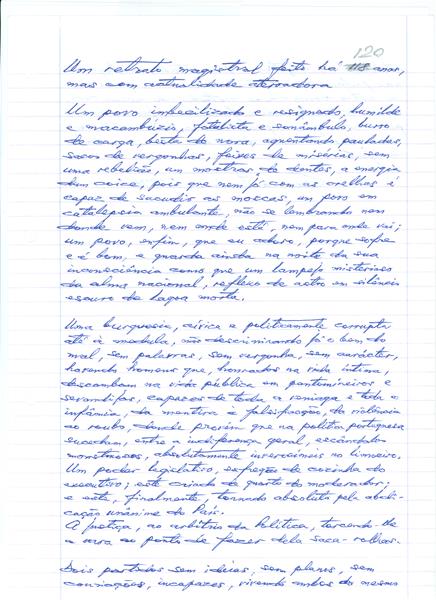 120
Um retrato magistral feito há 118 anos,
mas com actualidade aterradora
Um povo imbecilizado e resignado, humilde
e macambúzio, fatalista e sonâmbulo, burro
de carga, besta de nora, aguentando pauladas,
sacos de vergonhas, feixes de misérias, sem
uma rebelião, um mostrar de dentes, a energia
dum coice, pois que nem já com as orelhas é
capaz de sacudir as moscas, um povo em
catalepsia ambulante, não se lembrando nem
donde vem, nem onde está, nem para onde vai;
um povo, enfim, que eu adoro, porque sofre
e é bom, e guarda ainda na noite da sua
inconsciência como que um lampejo misterioso
da alma nacional, reflexo de astro em silêncio
escuro de lagoa morta.
Uma burguesia, cívica e politicamente corrupta
até à medula, não descriminando já o bem do
mal, sem palavras, sem vergonha, sem carácter,
havendo homens que, honrados na vida íntima,
descambam na vida pública em pantomineiros e
sevandijas, capazes de toda a veniaga e toda a
infâmia, da mentira à falsificação, da violência
ao roubo, donde provém que na política portuguesa
sucedam, entre a indiferença geral, escândalos
monstruosos, absolutamente inverosímeis no Limoeiro.
Um poder legislativo, esfregão de cozinha do
executivo; este criado de quarto do moderador;
e este, finalmente, tornado absoluto pela abdi-
cação unânime do País.
A justiça, ao arbítrio da Política, torcendo-lhe
a vara ao ponto de fazer dela saca-rolhas.
Dois partidos sem ideias, sem planos, sem
convicções, incapazes, vivendo ambos do mesmo